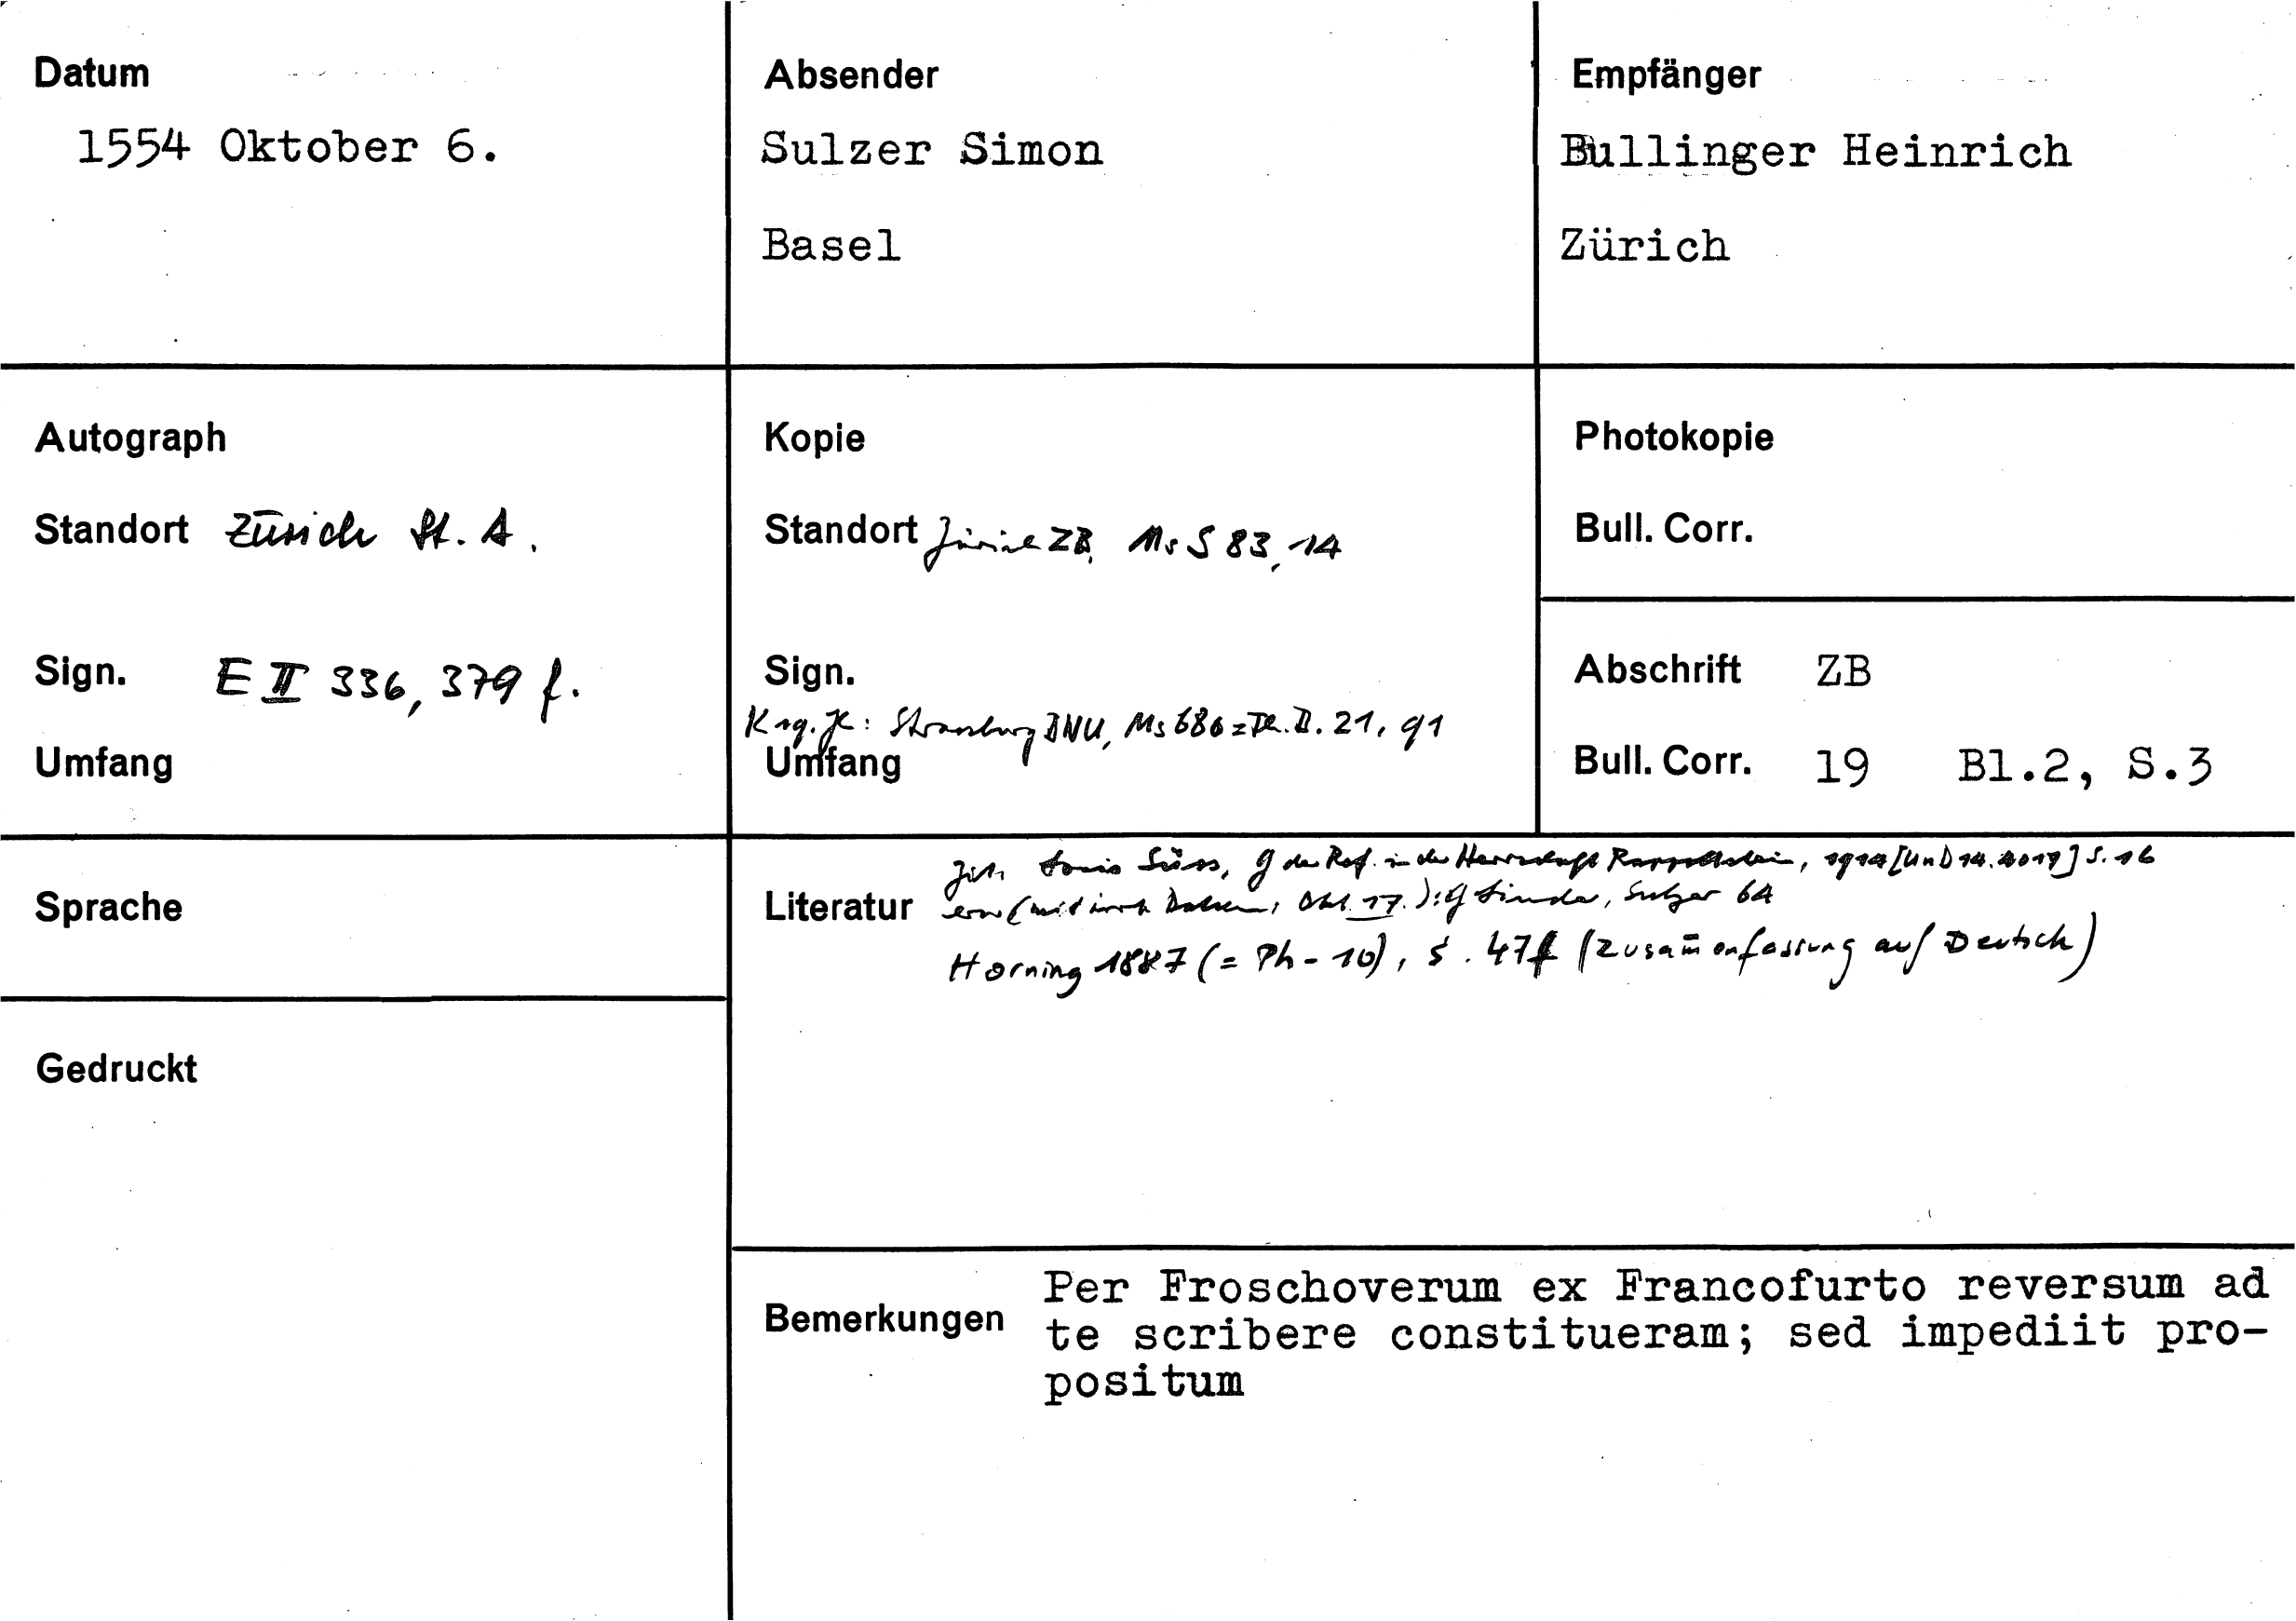 Datum
1554 Oktober 6.
Absender
Sulzer Simon
Basel
Empfänger
Bullinger Heinrich
Zürich
Autograph
Standort Zürich St. A.
Sign. E II 336, 379 f.
Umfang
Kopie
Standort Zürich ZB, Ms S 83, 14
Sign.
Strassburg BNU, Ms 686 = Th. B. 21, 91
Umfang
Photokopie
Bull. Corr.
Abschrift ZB
Bull. Corr. 19 Bl.2, S.3
Sprache
Gedruckt
Süss, G der Ref. in der Herrschaft Rappoltstein, 1914 S. 16
Literatur Sulzer 64
Horning 1887 (= Ph - 10), S. 47f (Zusam̅enfassung auf Deutsch)
Bemerkungen
Per Froschoverum ex Francofurto reversum ad
te scribere constitueram; sed impediit pro-
positum